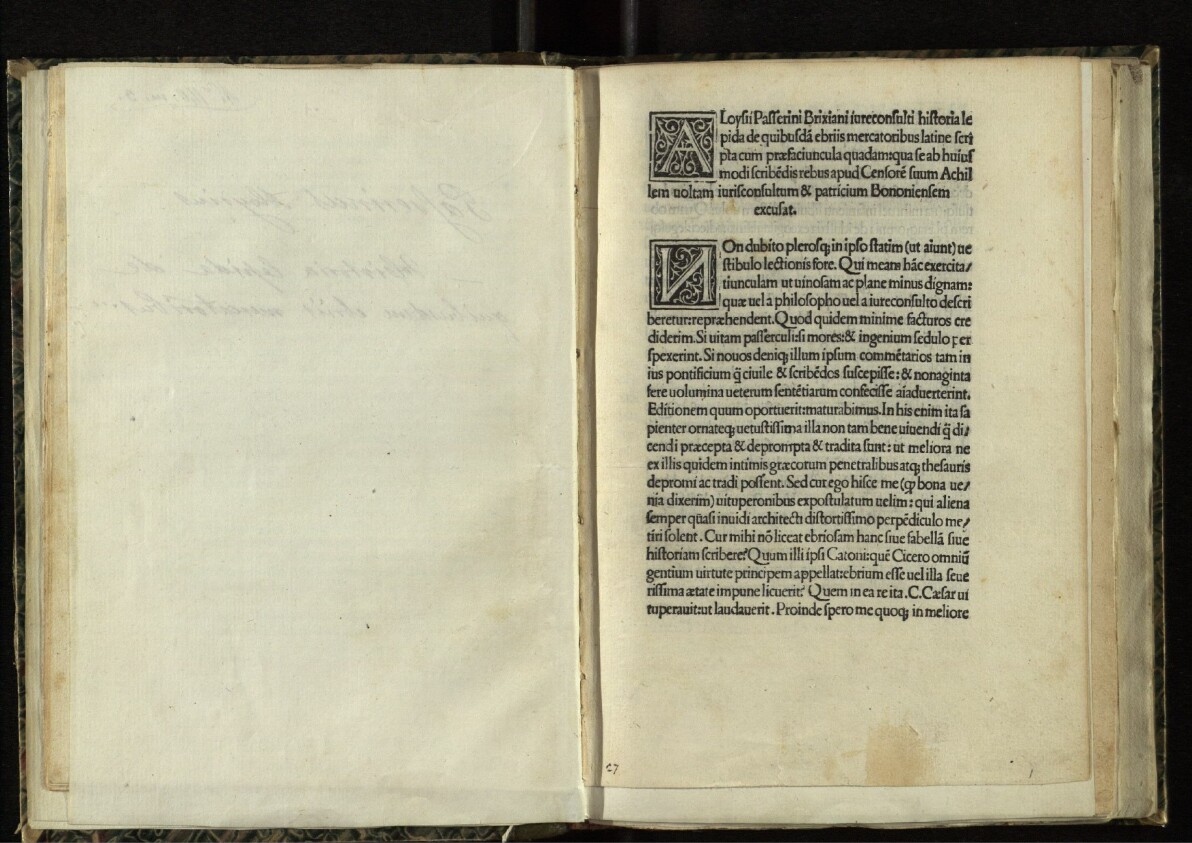 ALoysii Passerini Brixiani iureconsulti historia le
pida de quibusdā ebriis mercatoribus latine scri
pta cum præfaciuncula quadam:qua se ab huius
modi scribēdis rebus apud Censorē suum Achil
lem uoltam iurisconsultum & patricium Bononiensem
excusat.
NOn dubito plerosq; in ipso statim (ut aiunt) ue
stibulo lectionis fore. Qui meam hāc exercita/
tiunculam ut uinosam ac plane minus dignam:
quæ uel a philosopho uel a iureconsulto descri
beretur:repræhendent. Quod quidem minime facturos cre
diderim. Si uitam passerculi:si mores:& ingenium sedulo per
spexerint. Si nouos deniq; illum ipsum commētarios tam in
ius pontificium q̄ ciuile & scribēdos suscepisse: & nonaginta
fere uolumina ueterum sentētiarum confecisse aīaduerterint.
Editionem quum oportuerit:maturabimus. In his enim ita sa
pienter ornateq; uetustissima illa non tam bene uiuendi q̄ di/
cendi præcepta & deprompta & tradita sunt: ut meliora ne
ex illis quidem intimis græcorum penetralibus atq; thesauris
depromi ac tradi possent. Sed cur ego hisce me (ꝙ bona ue/
nia dixerim) uituperonibus expostulatum uelim: qui aliena
semper quasi inuidi architecti distortissimo perpēdiculo me/
tiri solent. Cur mihi nō liceat ebriosam hanc siue fabellā siue
historiam scribere? Quum illi ipsi Catoni:quē Cicero omniū
gentium uirtute principem appellat:ebrium esse uel illa seue
rissima ætate impune licuerit? Quem in ea re ita .C. Cæsar ui
tuperauit:ut laudauerit. Proinde spero me quoq; in meliore
27
1